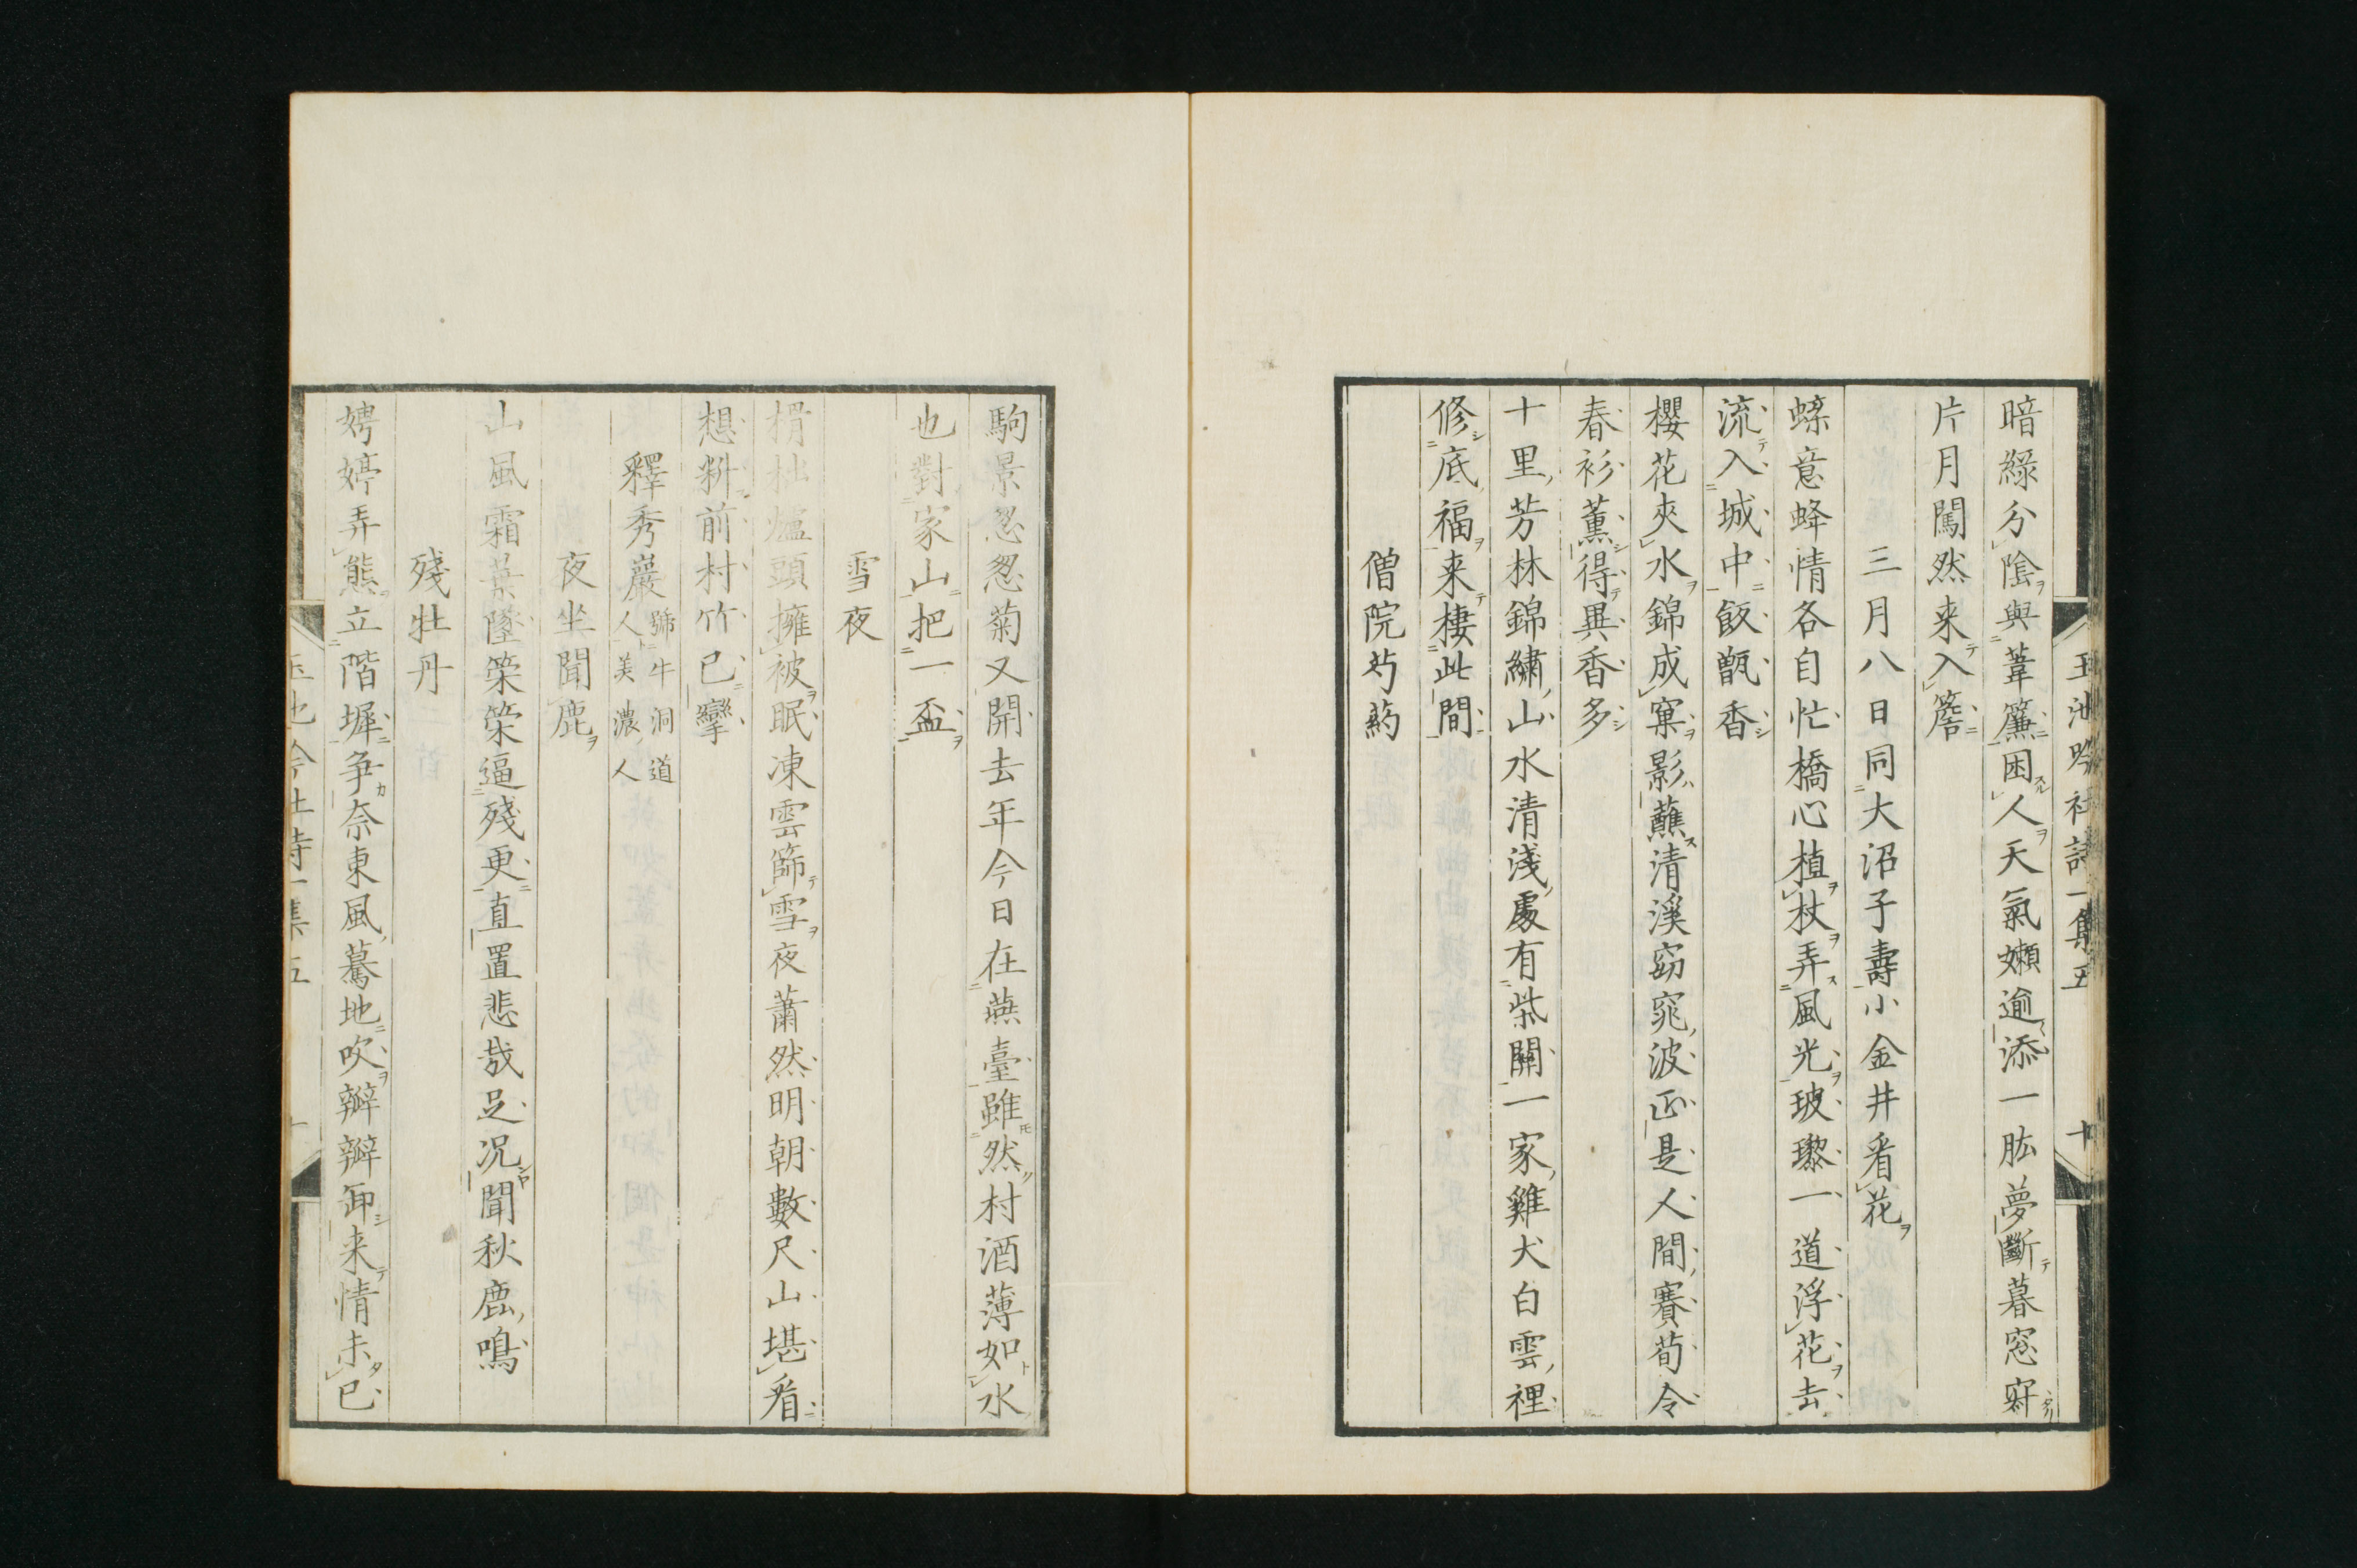 玉池吟社詩一集五 十
暗綠分陰與葦簾困人天氣嬾逾添一肱夢斷暮窓寂
片月闖然来入簷
三月八日同大沼子壽小金井看花
蝶意蜂情各自忙橋心植杖弄風光玻瓈一道浮花去
流入城中飯甑香
櫻花夾水錦成窠影蘸清溪窈窕波正是人間賽荀令
春衫薫得異香多
十里芳林錦繡山水清淺處有柴關一家雞犬白雲裡
修底福来棲此間
僧院芍葯
駒景忽忽菊又開去年今日在燕臺雖然村酒薄如水
也對家山把一盃
雪夜
榾柮爐頭擁被眠凍雲篩雪夜蕭然明朝數尺山堪看
想料前村竹已攣
釋秀巖 號牛洞道人美濃人
夜坐聞鹿
山風霜葉墜策策逼殘更直置悲哉足况聞秋鹿鳴
殘牡丹
娉婷弄態立階墀争奈東風驀地吹瓣瓣卸来情未已
玉池吟社詩一集五